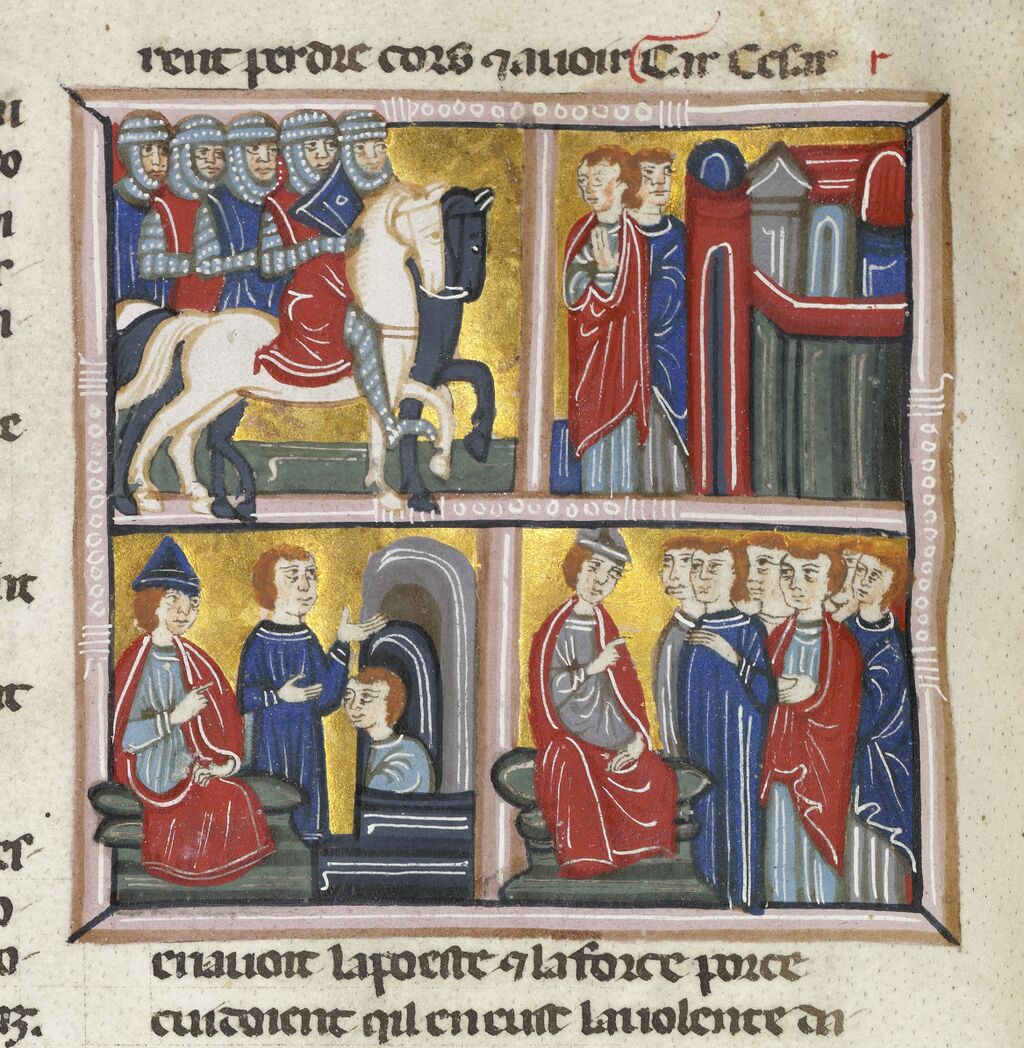 rent perdre cors ⁊ auoir Car Cesar
en auoit la poeste ⁊ la force por ce
cuidoient qil en eust la uolente